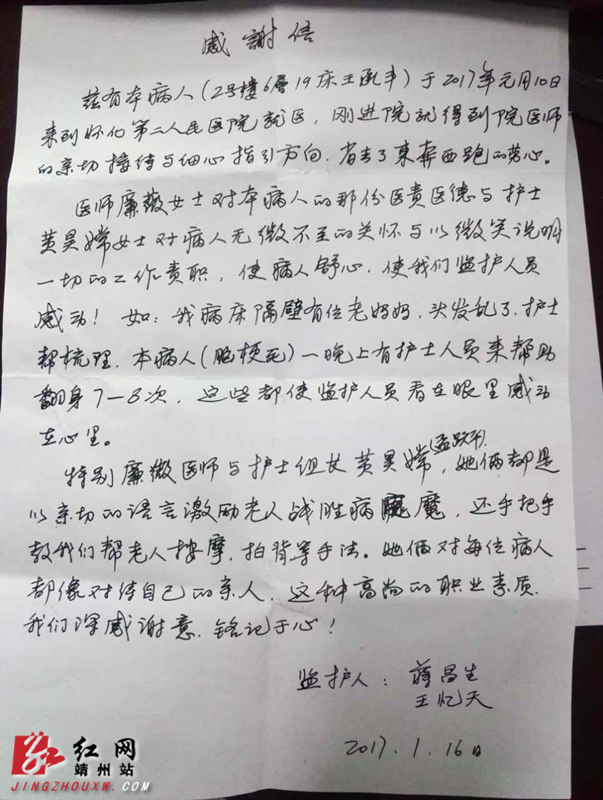 感謝信
兹有本病人(2号楼6層19床王承丰)于2017年元月10日
来到怀化第二人民医院就医,刚进院就得到院医师
的亲切接待与细心指引方向.省去了东奔西跑的劳心。
医师廉薇女士对本病人的那份医责医德与护士
黄昊嫦女士对病人无微不至的关怀与以微笑说明
一切的工作责职,使病人舒心.使我们监护人员
感动!如:我病床隔壁有位老奶奶.头发乱了.护士
帮梳理.本病人(脑梗死)一晚上有护士人员来帮助
翻身7-8次,这些都使监护人员看在眼里感动
在心里。
特别廉微医师与护士组长黄昊嫦,她俩都是
以亲切的语言激励老人战胜病魔,还手把手
教我们帮老人按摩.拍背等手法。她俩对每位病人
都像对待自己的亲人.这种高尚的职业素质.
我们深感谢意.铭记于心!
监护人:蒋昌生
王忆天
2017.1.16日
红网
靖州站
JINGZHOUXW.COM